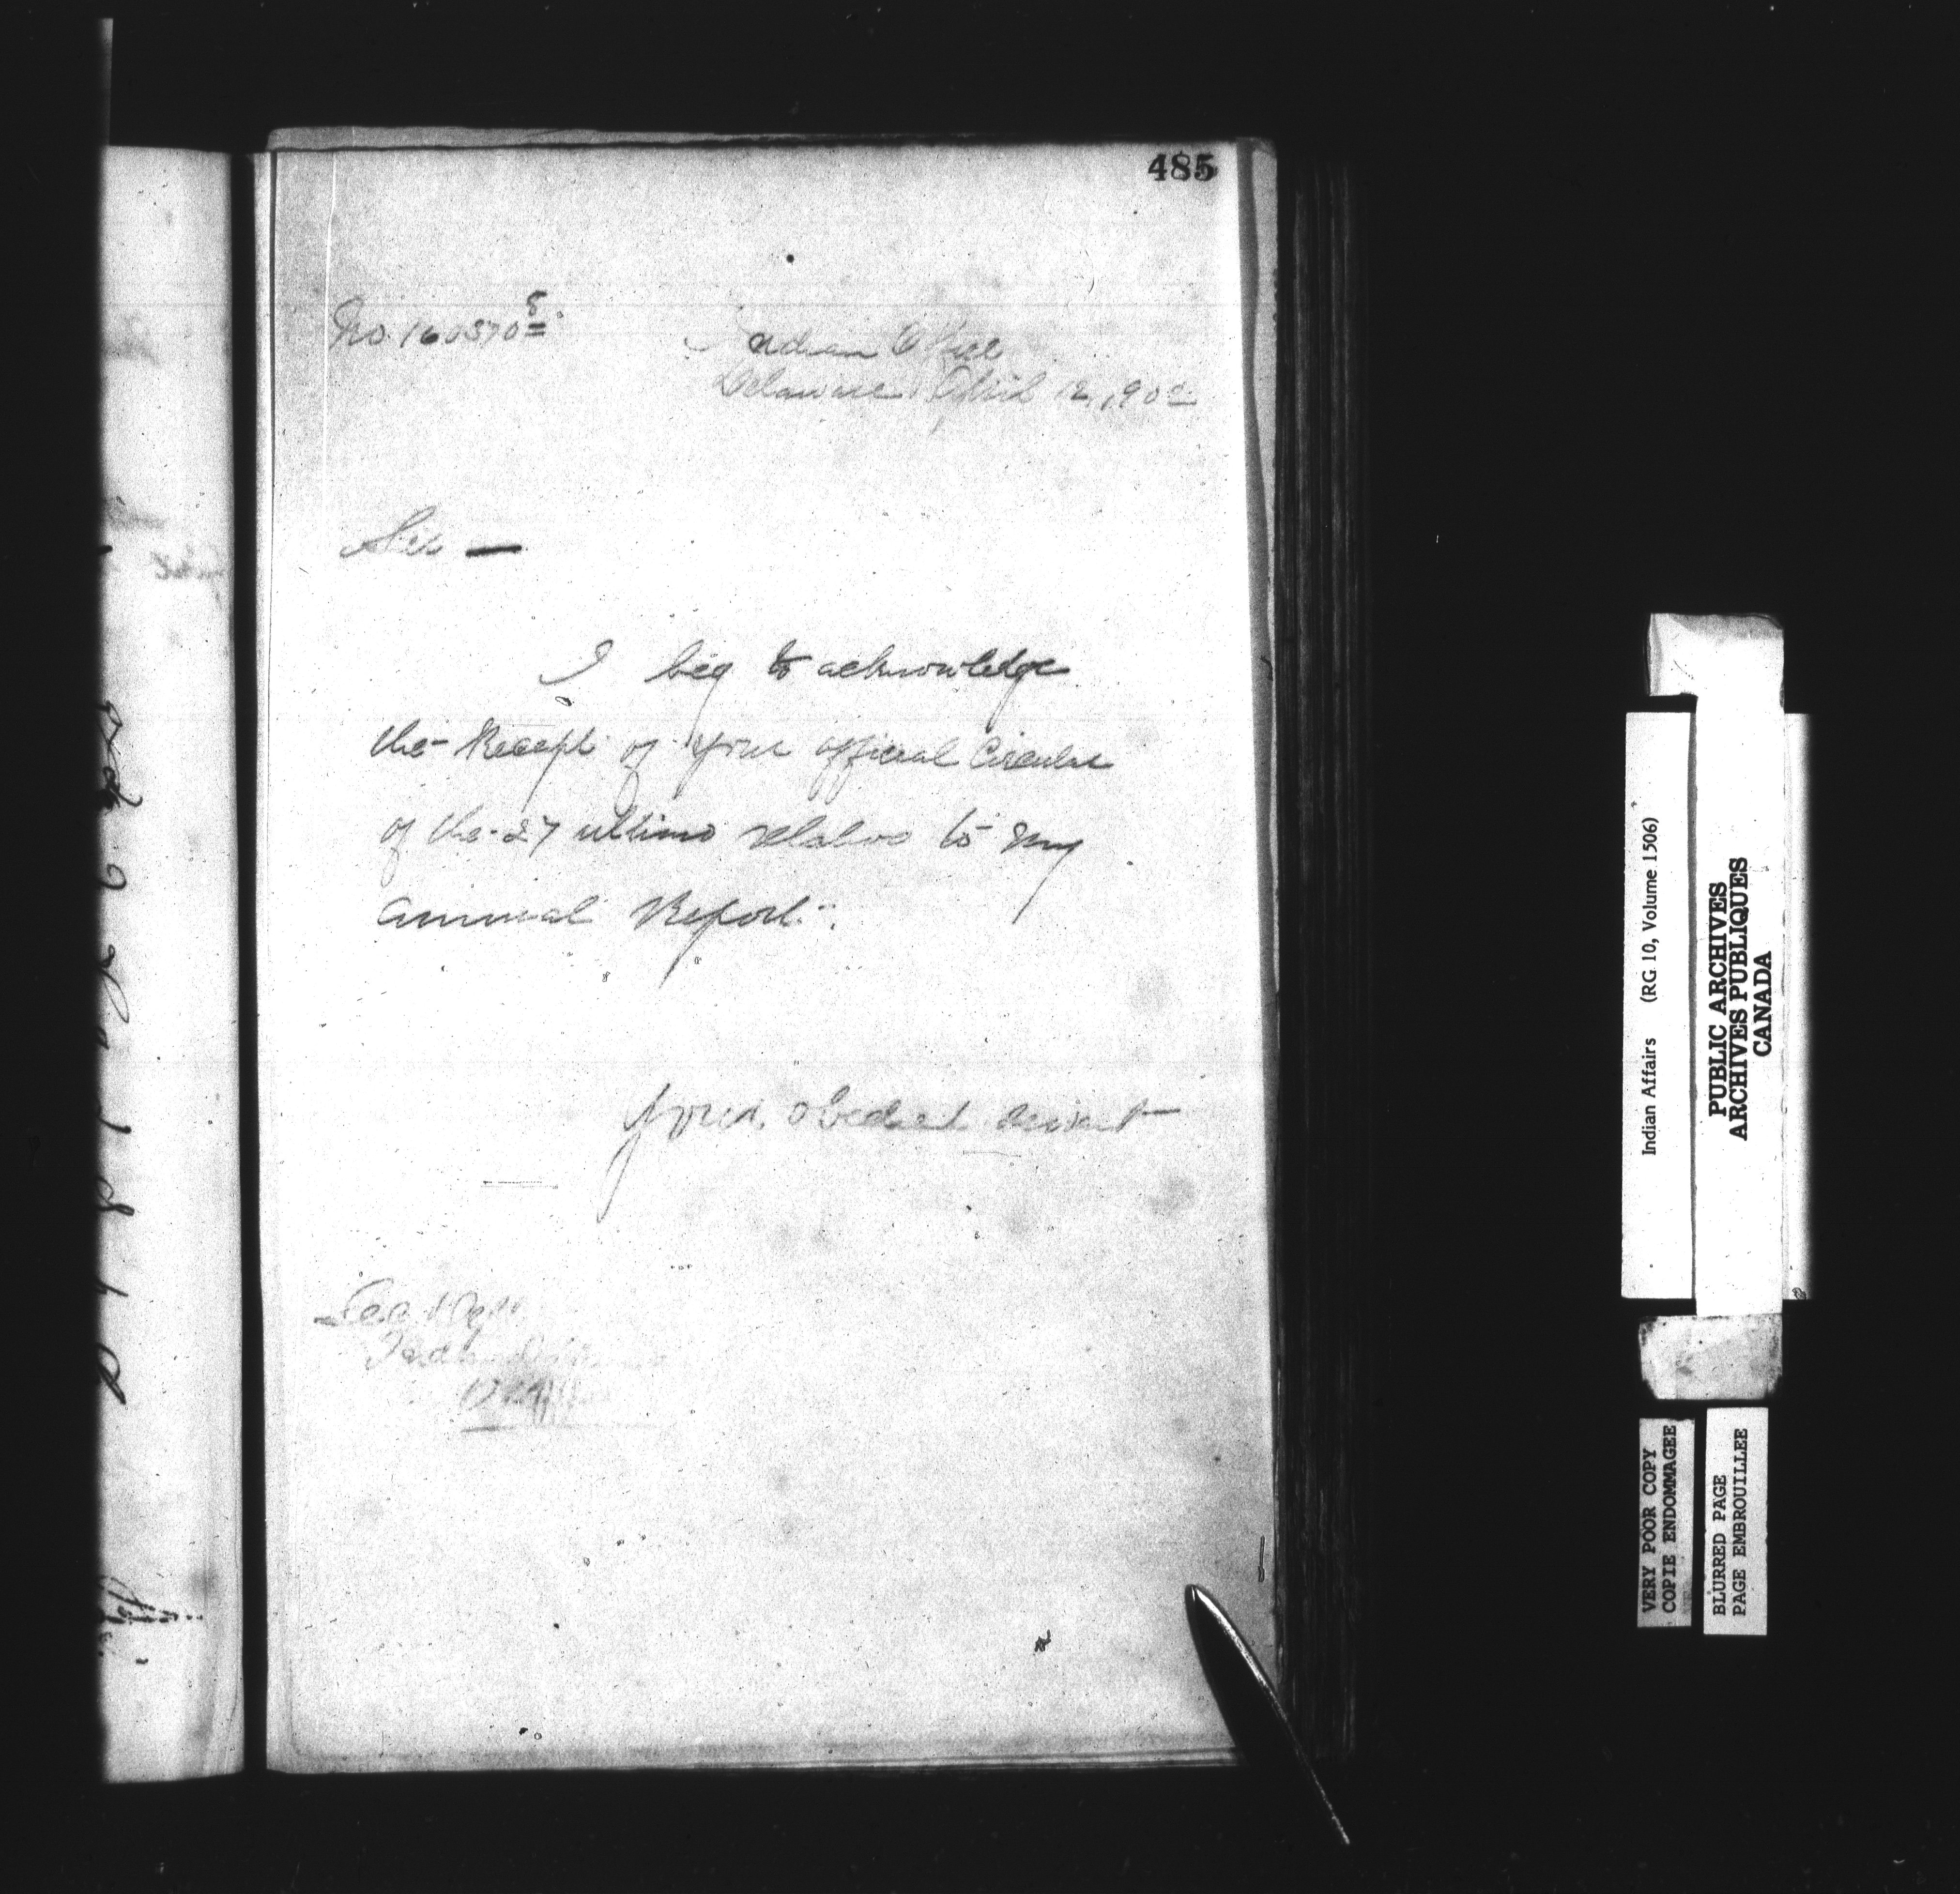 485
No. 160370 8
Indian Office
Delaware April 12, 190
Sir —
I beg to acknowledge
the Receipt of your official Circular
of the 27 ultimo relative to my
annual Report.
Your obedient servant
Indian
Indian Affairs (RG 10, Volume 1506)
PUBLIC ARCHIVES
ARCHIVES PUBLIQUES
CANADA
VERY POOR COPY
COPIE ENDOMMAGEE
BLURRED PAGE
PAGE EMBROUILLEE